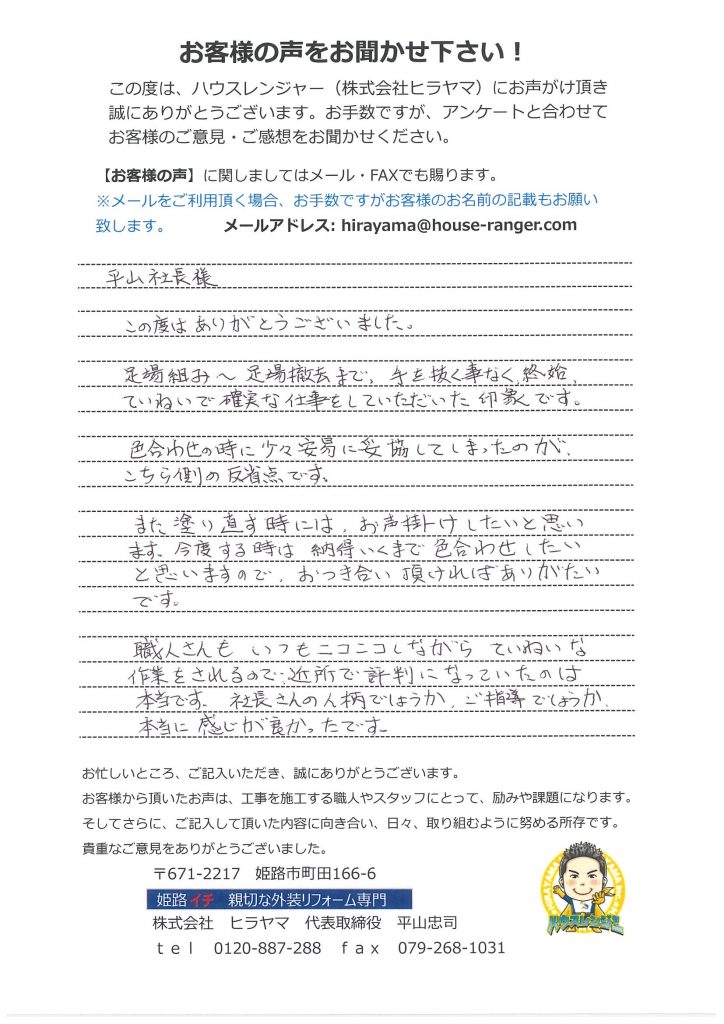 お客様の声をお聞かせ下さい！
この度は、ハウスレンジャー（株式会社ヒラヤマ）にお声がけ頂き
誠にありがとうございます。お手数ですが、アンケートと合わせて
お客様のご意見・ご感想をお聞かせください。
【お客様の声】に関しましてはメール・FAXでも賜ります。
※メールをご利用頂く場合、お手数ですがお客様のお名前の記載もお願い
致します。　メールアドレス: hirayama@house-ranger.com
平山社長様
この度はありがとうございました。
足場組み〜足場撤去まで、手を抜く事なく、終始、
ていねいで確実な仕事をしていただいた印象です。
色合わせの時に少々安易に妥協してしまったのが、
こちら側の反省点です。
また塗り直す時には、お声掛けしたいと思い
ます。今度する時は納得いくまで色合わせしたい
と思いますので、おつき合い頂ければありがたい
です。
職人さんもいつもニコニコしながらていねいな
作業をされるので、近所で評判になっていたのは
本当です。社長さんの人柄でしょうか、ご指導でしょうか、
本当に感じが良かったです。
お忙しいところ、ご記入いただき、誠にありがとうございます。
お客様から頂いたお声は、工事を施工する職人やスタッフにとって、励みや課題になります。
そしてさらに、ご記入して頂いた内容に向き合い、日々、取り組むように努める所存です。
貴重なご意見をありがとうございました。
〒671-2217　姫路市町田166-6
姫路イチ　親切な外装リフォーム専門
株式会社　ヒラヤマ　代表取締役　平山忠司
ｔｅｌ　0120-887-288　ｆａｘ　079-268-1031
ハウスレンジャー